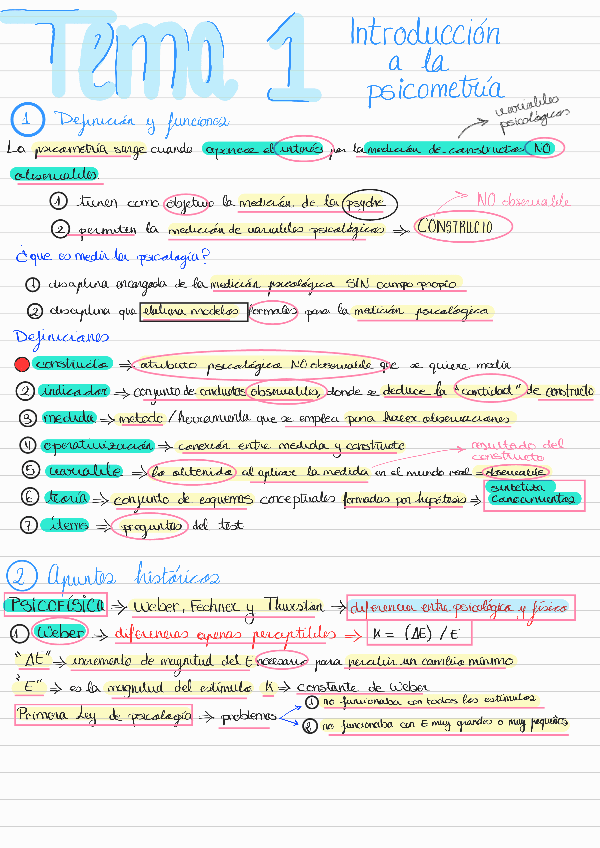 Tema 1
Introducción
a la
psicometría
1 Definición y funciones
variables
psicológicas
La psicometría surge cuando aparece el interés por la medición de constructos NO
observables.
1 tienen como objetivo la medición de la psyche
NO observable
2 permiten la medición de variables psicológicas → CONSTRUCTO
¿que es medir la psicología?
1 disciplina encargada de la medición psicológica SIN campo propio
2 disciplina que elabora modelos formales para la medición psicológica
Definiciones
constructo → atributo psicológico NO observable que se quiere medir
2 indicador → conjunto de conductas observables, donde se deduce la "cantidad" de constructo
3 medida → metodo / herramienta que se emplea para hacer observaciones
4 operativización → conexión entre medida y constructo
resultado del
constructo
5 variable → lo obtenido al aplicar la medida en el mundo real = observable
6 teoría → conjunto de esquemas conceptuales formadas por hipótesis → sintetiza
conocimientos
7 ítems → preguntas del test
2 Apuntes históricos
PSICOFÍSICA → Weber, Fechner y Thurstan → diferencia entre psicológico y físico
1 Weber → diferencias apenas perceptibles → K = (ΔE) / E
"ΔE" → incremento de magnitud del E necesario para percibir un cambio mínimo
"E" → es la magnitud del estímulo K → constante de Weber
Primera Ley de psicología → problemas
1 no funcionaba con todos los estímulos
2 no funcionaba con E muy grandes o muy pequeños